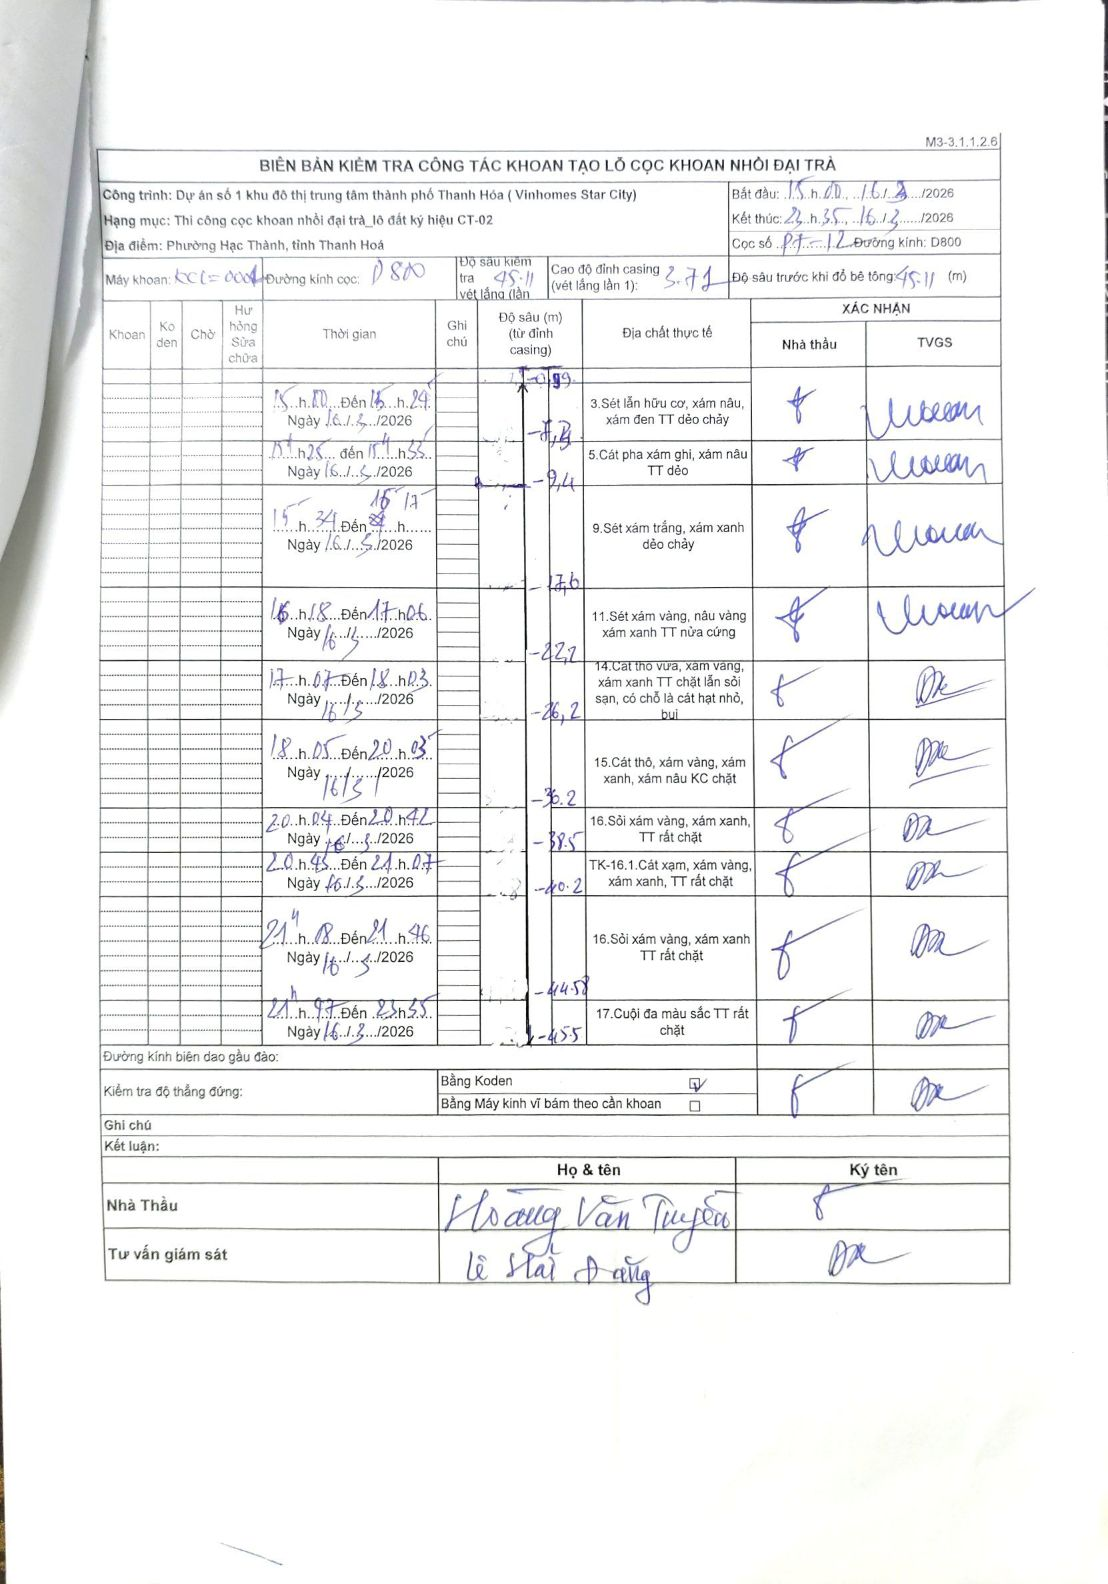 M3-3.1.1.2.6
BIÊN BẢN KIỂM TRA CÔNG TÁC KHOAN TẠO LỖ CỌC KHOAN NHỒI ĐẠI TRÀ
Công trình: Dự án số 1 khu đô thị trung tâm thành phố Thanh Hóa ( Vinhomes Star City)
Hạng mục: Thi công cọc khoan nhồi đại trà_lô đất ký hiệu CT-02
Địa điểm: Phường Hạc Thành, tỉnh Thanh Hoá
Bắt đầu: 15.h.00, 16/3/2026
Kết thúc: 23.h.35, 16/3/2026
Cọc số P7-12 Đường kính: D800
Máy khoan: Đường kính cọc: D800
Độ sâu kiểm tra 45.11 vét lắng (lần
Cao độ đỉnh casing (vét lắng lần 1): 3.71
Độ sâu trước khi đổ bê tông: 45.11 (m)
Khoan
Ko đen
Chờ
Hư hỏng Sửa chữa
Thời gian
Ghi chú
Độ sâu (m) (từ đỉnh casing)
Địa chất thực tế
XÁC NHẬN
Nhà thầu
TVGS
15.h.00 Đến 15.h.24
Ngày 16/3/2026
3.Sét lẫn hữu cơ, xám nâu, xám đen TT dẻo chảy
15h25 đến 15h33
Ngày 16/3/2026
-9,4
5.Cát pha xám ghi, xám nâu TT dẻo
15.h.34 Đến 16 h 17
Ngày 16/3/2026
-17,6
9.Sét xám trắng, xám xanh dẻo chảy
16.h.18 Đến 17.h06
Ngày 16/3/2026
-22,2
11.Sét xám vàng, nâu vàng xám xanh TT nửa cứng
17.h.07 Đến 18.h.03
Ngày 16/3/2026
-26,2
14.Cát thô vừa, xám vàng, xám xanh TT chặt lẫn sỏi sạn, có chỗ là cát hạt nhỏ, bụi
18.h.05 Đến 20.h.03
Ngày 16/3/2026
-36.2
15.Cát thô, xám vàng, xám xanh, xám nâu KC chặt
20.h.04 Đến 20.h42
Ngày 16/3/2026
-38.5
16.Sỏi xám vàng, xám xanh, TT rất chặt
20.h.43 Đến 21.h.07
Ngày 16/3/2026
-40.2
TK-16.1.Cát xạm, xám vàng, xám xanh, TT rất chặt
21.h.08 Đến 21.h.46
Ngày 16/3/2026
-44.58
16.Sỏi xám vàng, xám xanh TT rất chặt
21.h.47 Đến 23h35
Ngày 16/3/2026
-45.5
17.Cuội đa màu sắc TT rất chặt
Đường kính biên dao gầu đào:
Kiểm tra độ thẳng đứng:
Bằng Koden
Bằng Máy kinh vĩ bám theo cần khoan
Ghi chú
Kết luận:
Họ & tên
Ký tên
Nhà Thầu
Hoàng Văn Tuyền
Tư vấn giám sát
Lê Hải Đăng